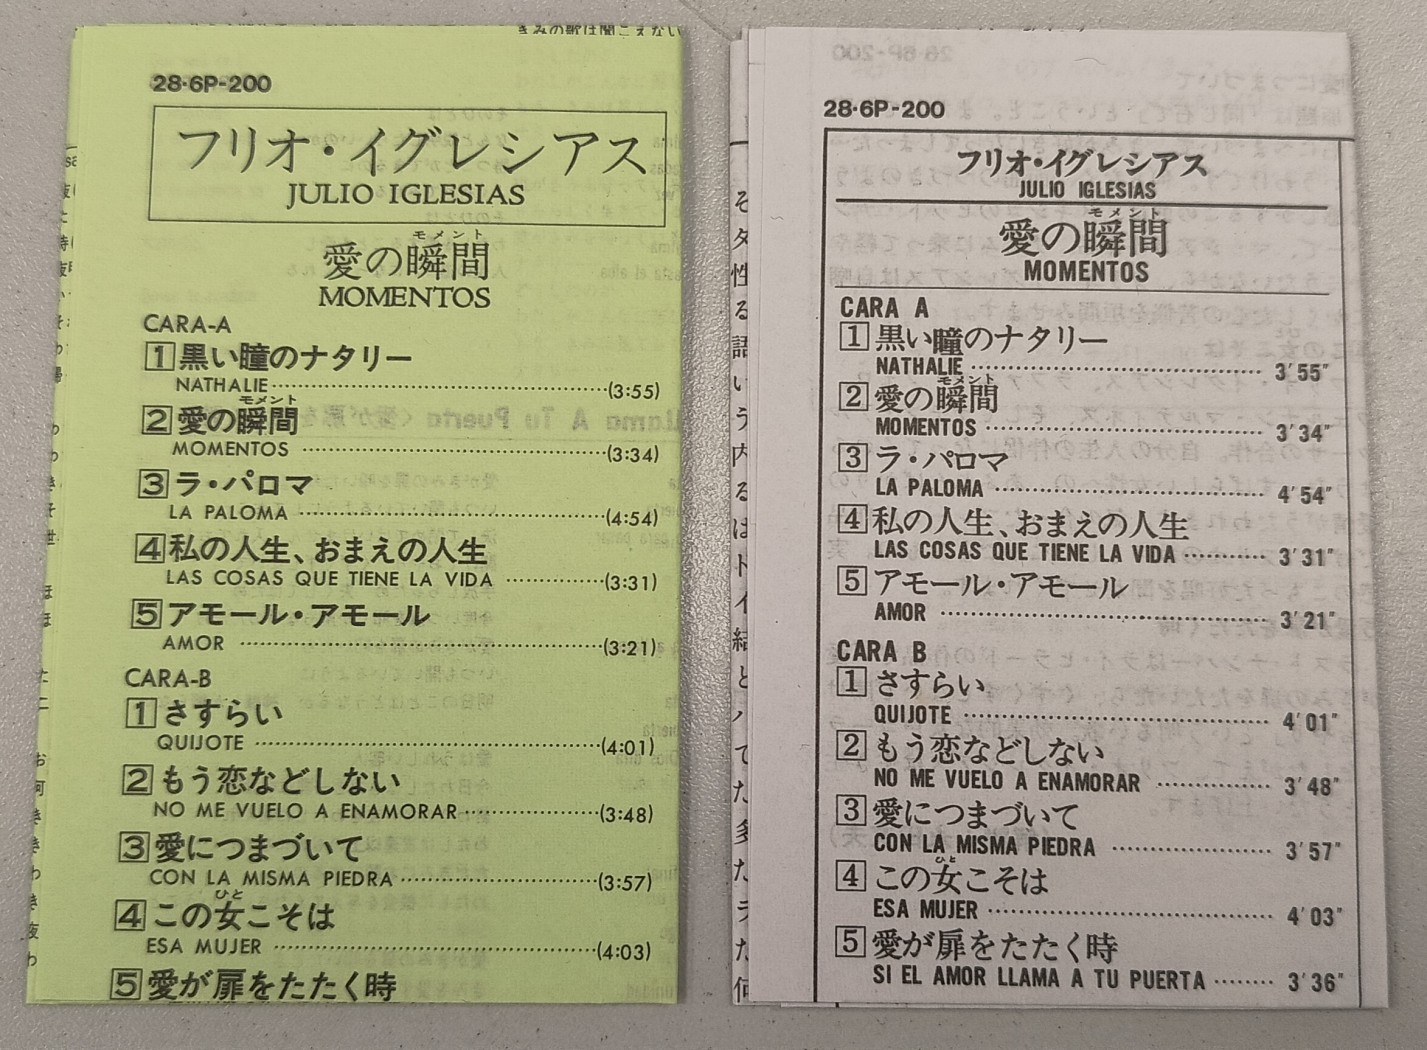 28・6P-200
フリオ・イグレシアス
JULIO IGLESIAS
モメント
愛の瞬間
MOMENTOS
CARA-A
1 黒い瞳のナタリー
NATHALIE (3:55)
モメント
2 愛の瞬間
MOMENTOS (3:34)
3 ラ・パロマ
LA PALOMA (4:54)
4 私の人生、おまえの人生
LAS COSAS QUE TIENE LA VIDA (3:31)
5 アモール・アモール
AMOR (3:21)
CARA-B
1 さすらい
QUIJOTE (4:01)
2 もう恋などしない
NO ME VUELO A ENAMORAR (3:48)
3 愛につまづいて
CON LA MISMA PIEDRA (3:57)
ひと
4 この女こそは
ESA MUJER (4:03)
5 愛が扉をたたく時
28・6P-200
フリオ・イグレシアス
JULIO IGLESIAS
モメント
愛の瞬間
MOMENTOS
CARA A
1 黒い瞳のナタリー
NATHALIE 3'55"
モメント
2 愛の瞬間
MOMENTOS 3'34"
3 ラ・パロマ
LA PALOMA 4'54"
4 私の人生、おまえの人生
LAS COSAS QUE TIENE LA VIDA 3'31"
5 アモール・アモール
AMOR 3'21"
CARA B
1 さすらい
QUIJOTE 4'01"
2 もう恋などしない
NO ME VUELO A ENAMORAR 3'48"
3 愛につまづいて
CON LA MISMA PIEDRA 3'57"
ひと
4 この女こそは
ESA MUJER 4'03"
5 愛が扉をたたく時
SI EL AMOR LLAMA A TU PUERTA 3'36"